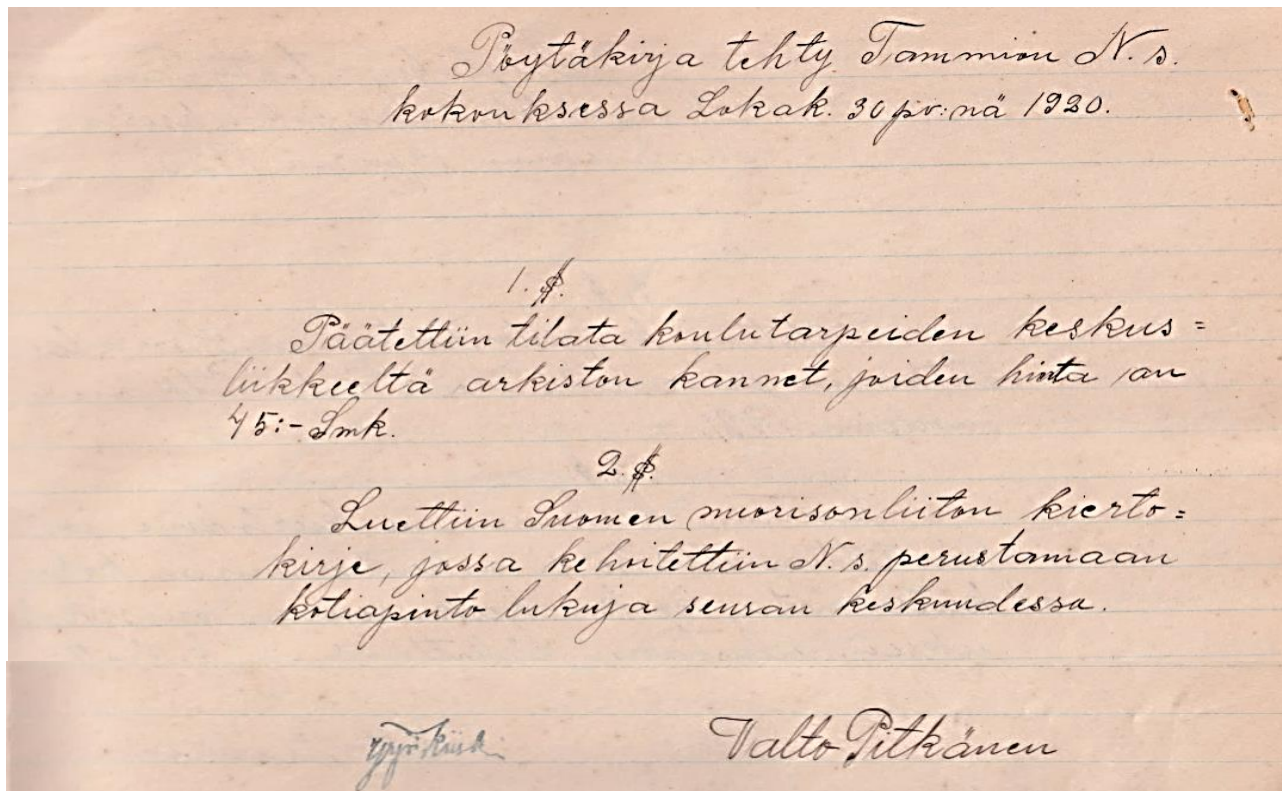 Pöytäkirja tehty Tammion N.s.
kokouksessa Lokak. 30 pv:nä 1920.
1. §.
Päätettiin tilata koulutarpeiden keskus=
liikkeeltä arkiston kannet, joiden hinta on
45:- Smk.
2. §.
Luettiin Suomen nuorisonliiton kierto=
kirje, jossa kehoitettiin N.s. perustamaan
kotiapinto lukuja seuran keskuudessa.
Valto Pitkänen